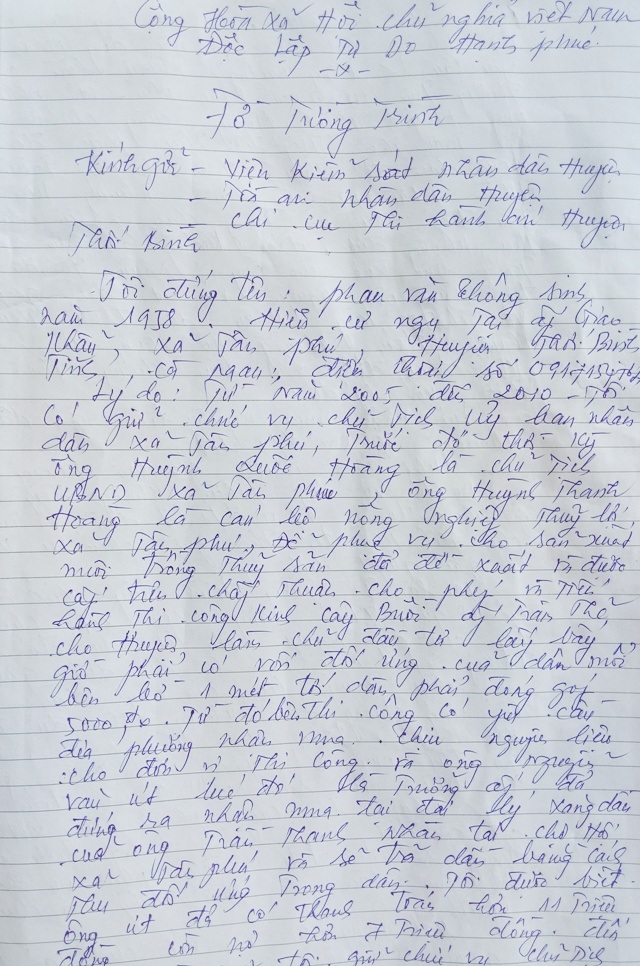 Cộng Hòa Xã Hội chủ nghĩa việt Nam
Độc Lập Tự Do Hạnh phúc
-x-
Tờ Tường Trình
Kính gửi - Viện Kiểm Sát nhân dân Huyện
- Tòa án nhân dân Huyện
- chi cục Thi hành án Huyện
Thới Bình
Tôi đứng tên: phan văn thông sinh
năm 1958. Hiện cư ngụ Tại ấp Giao
Khẩu, xã Tân phú Huyện Thới Bình
Tỉnh, cà mau, điện thoại số
Lý do: Từ năm 2005 đến 2010 - Tôi
có giữ chức vụ chủ Tịch Uỷ ban nhân
dân xã Tân phú, Trước đó thời kỳ
ông Huỳnh Quốc Hoàng là chủ Tịch
UBND xã Tân phú, ông Huỳnh Thanh
Hoang là cán bộ nông nghiệp Thuỷ lợi
xã Tân phú. Để phục vụ cho sản xuất
nuôi Trồng Thuỷ sản đã đề xuất và được
cấp trên chấp Thuận cho phép và Tiến
hành Thi công Kinh cây Bưởi ấp Trần Thơ,
cho Huyện làm chủ đầu tư lấy bây
giờ phải có vốn đối ứng của dân mỗi
bên bờ 1 mét tới dân phải đóng góp
5000,đo. Từ đó bên Thi công có yêu cầu
địa phương nhận mua chịu nguyên liệu
cho đơn vị Thi công. và ông nguyễn
văn út lúc đó là Trưởng ấp đã
đứng ra nhận mua tại đại lý xăng dầu
của ông Trần Thanh nhân tại chợ Hội
xã Tân phú và sẽ trả dần bằng cách
Thu đối ứng Trong dân. Tôi được biết
ông út đã có Thanh Toán hơn 11 Triệu
đồng còn nợ hơn 7 Triệu đồng. đến
tôi giữ chức vụ chủ Tịch